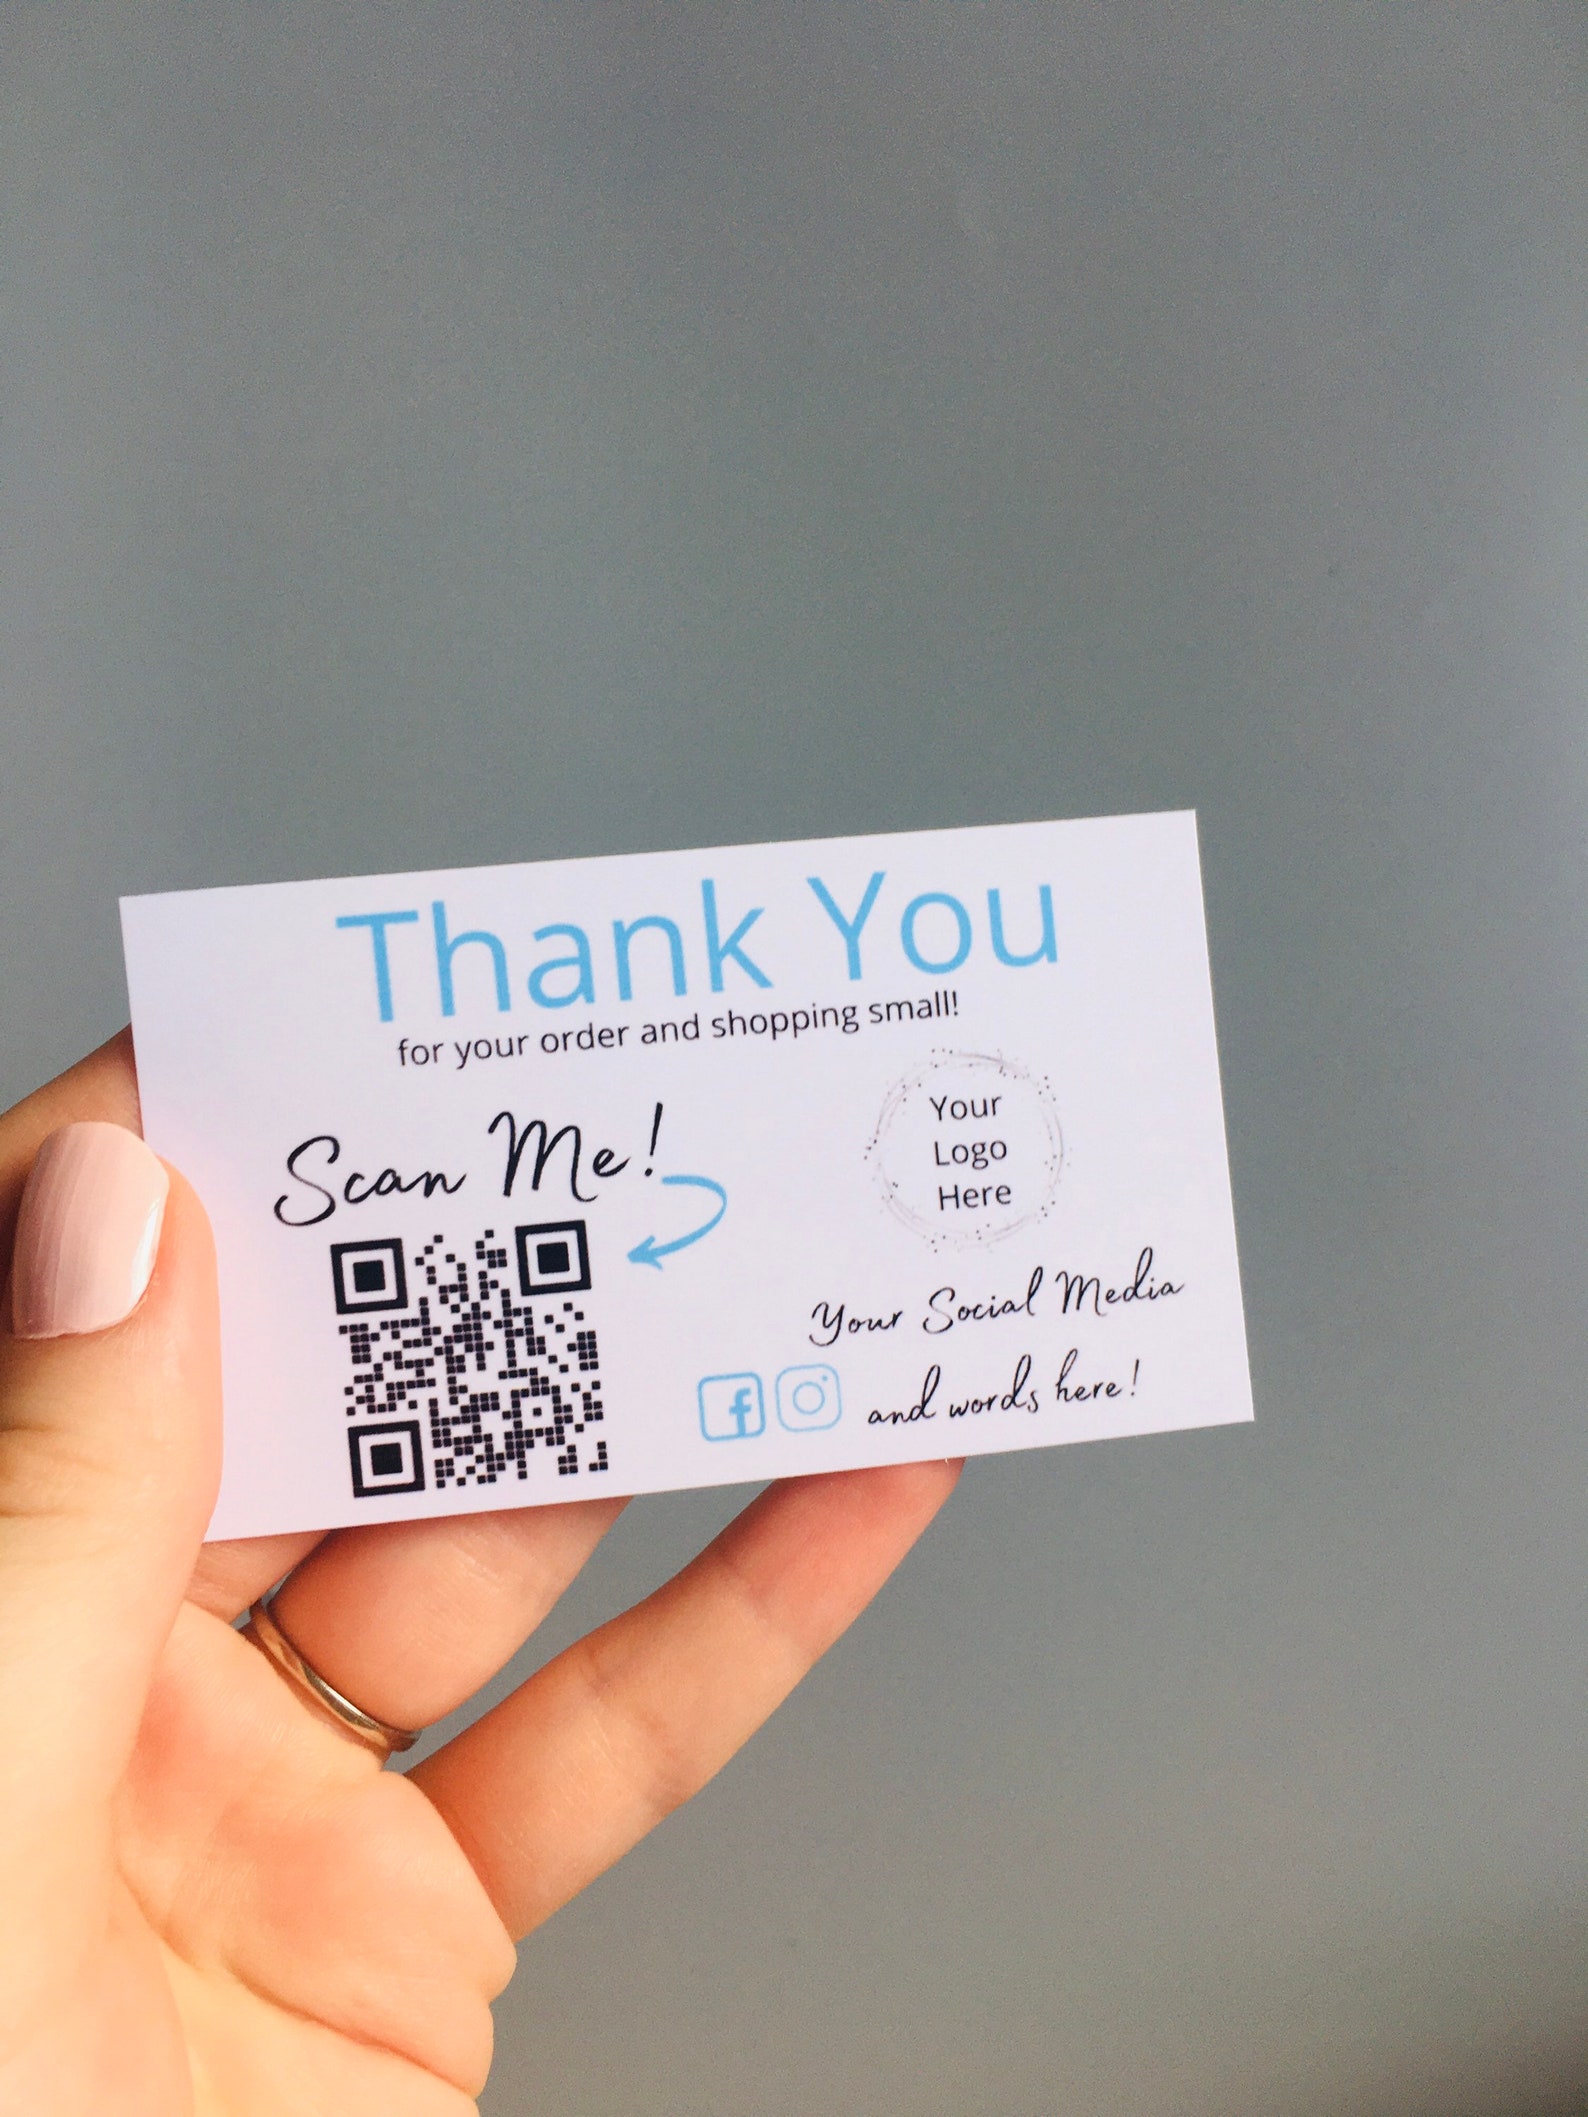 Thank You
for your order and shopping small!
Scan Me!
Your
Logo
Here
Your Social Media
and words here!